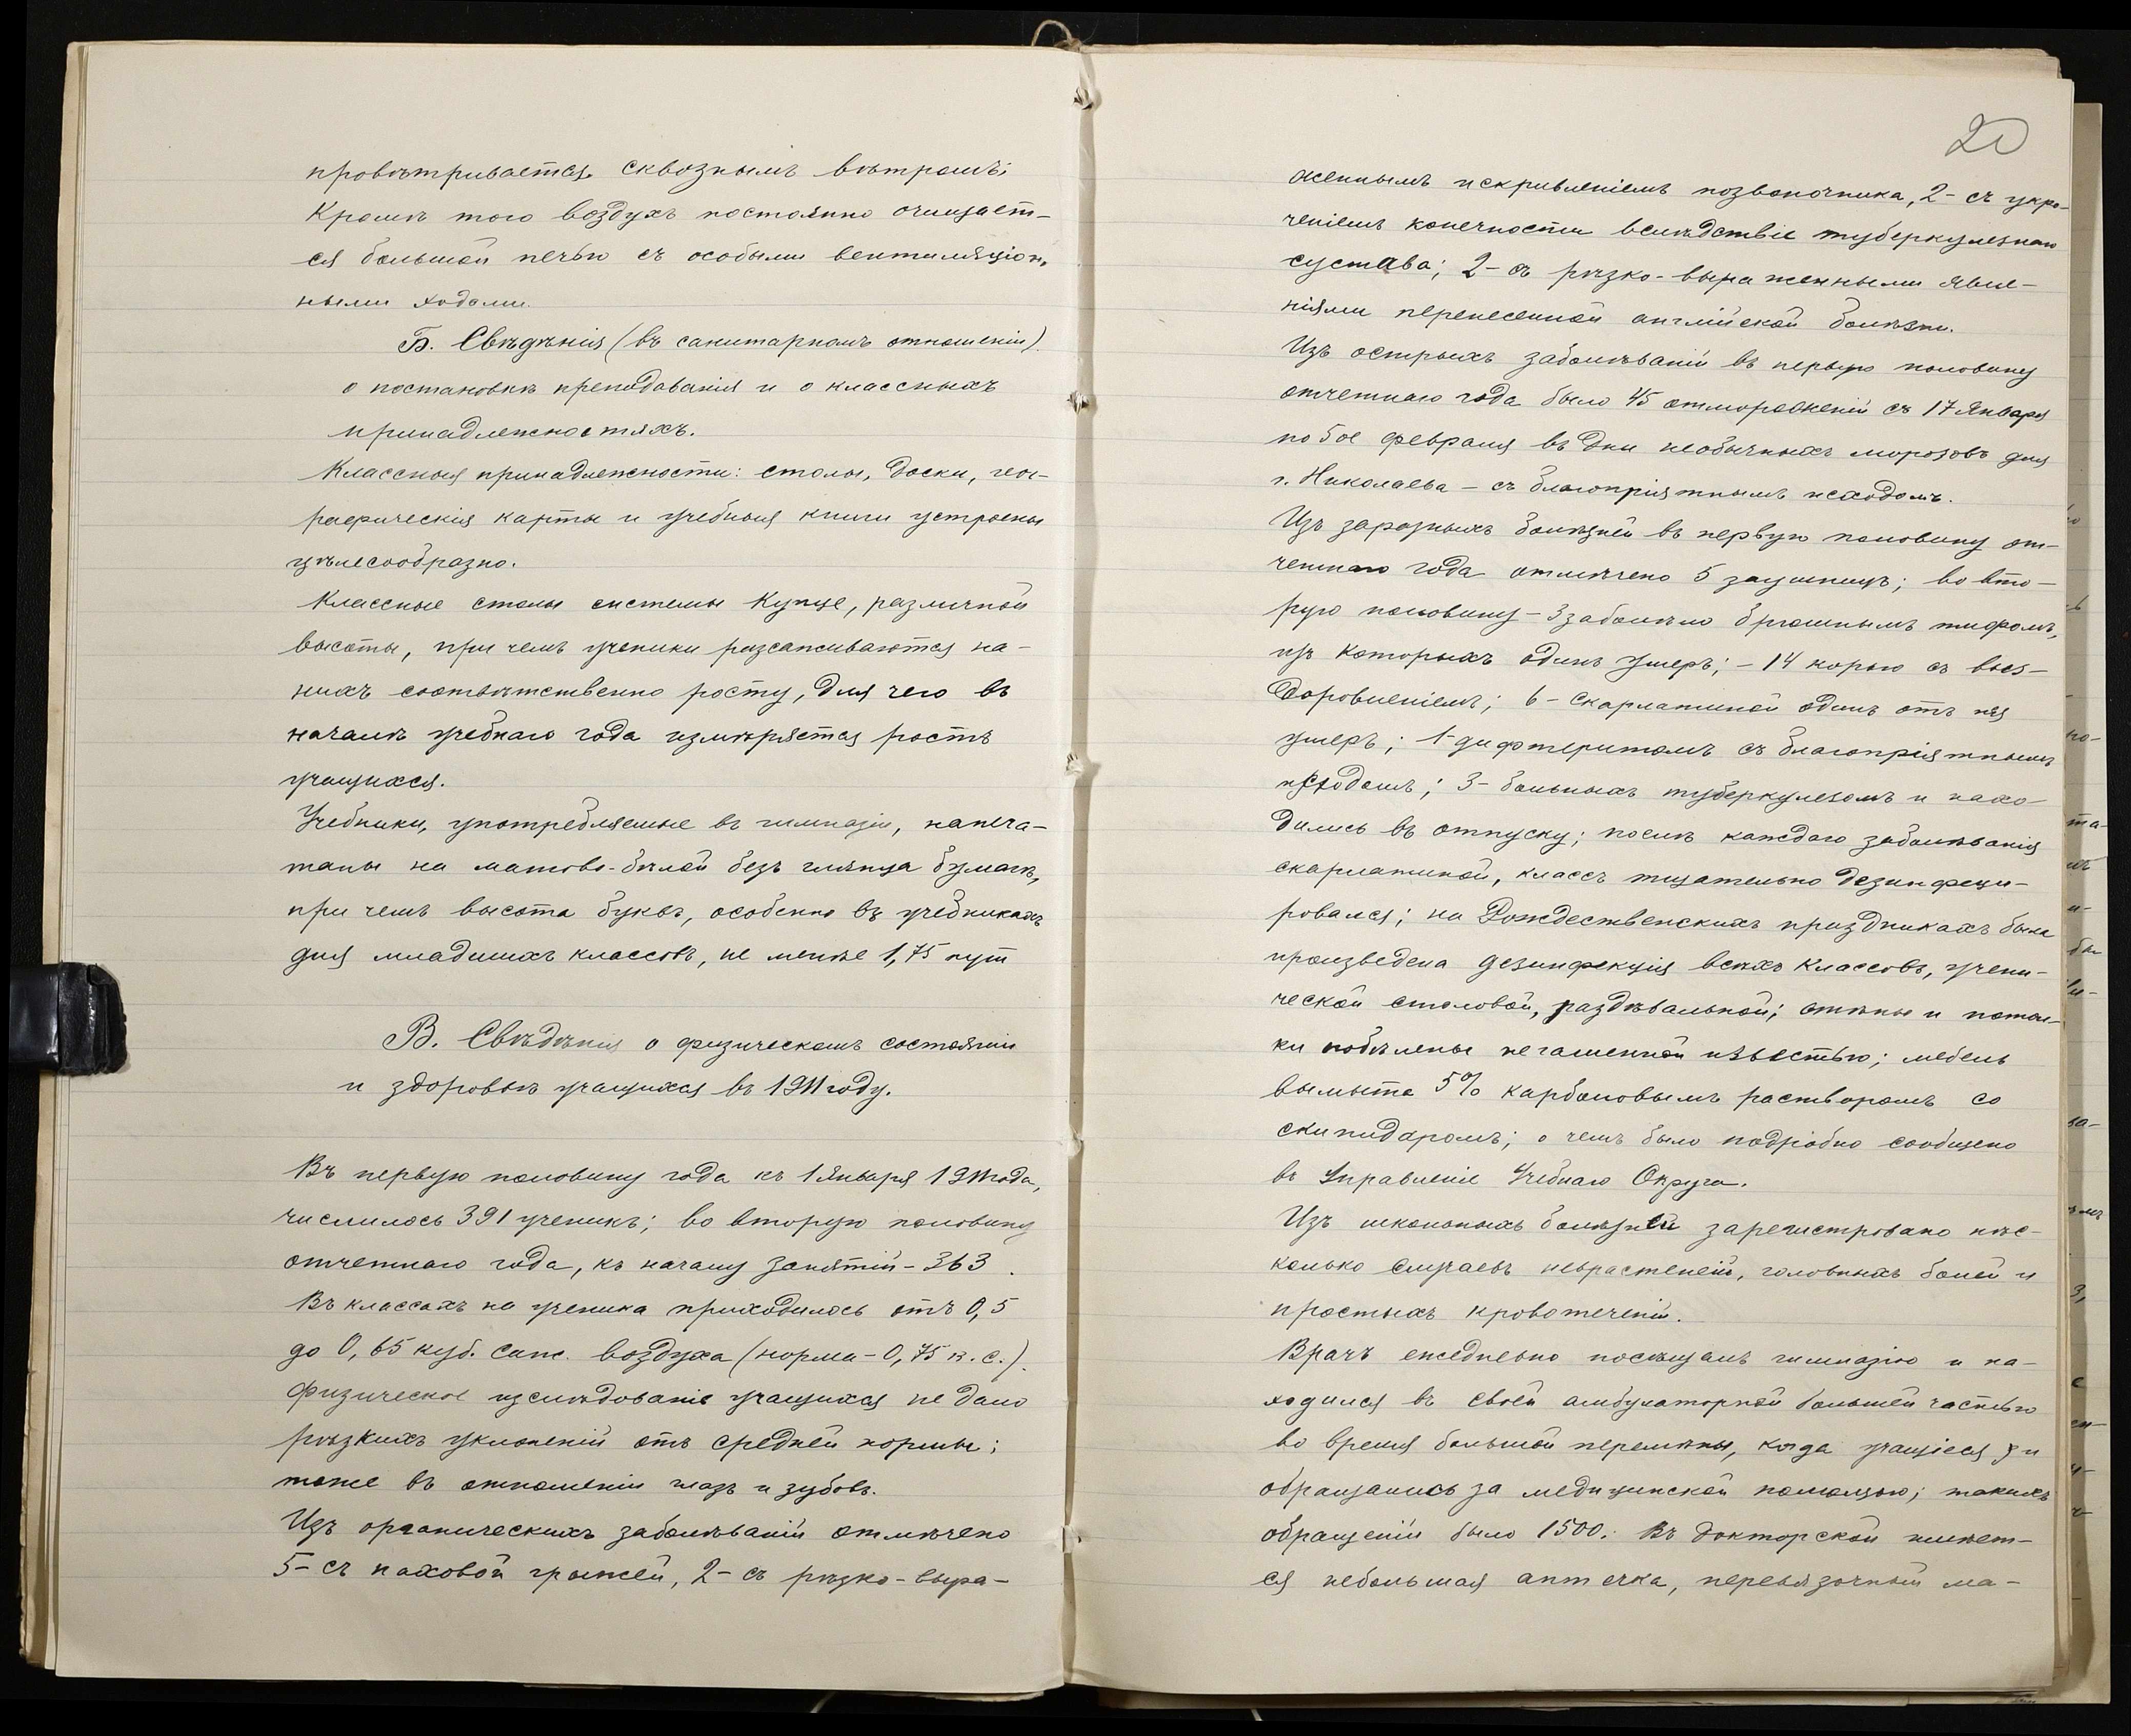 провѣтривается сквознымъ вѣтромъ;
Кромѣ того воздухъ постоянно очищает-
ся большой печью съ особыми вентиляціон-
ными ходами.
Б. Свѣдѣнія (въ санитарномъ отношеніи)
о постановкѣ преподаванія и о классныхъ
принадлежностяхъ.
Классныя принадлежности: столы, доски, геог-
рафическія карты и учебныя книги устроены
цѣлесообразно.
Классные столы системы Кунце, различной
высоты, при чемъ ученики разсаживаются на-
нихъ соотвѣтственно росту, для чего въ
началѣ учебнаго года измѣряется ростъ
учащихся.
Учебники, употребляемые въ гимназіи, напеча-
таны на матово-бѣлой безъ глянца бумагѣ,
при чемъ высота буквъ, особенно въ учебникахъ
для младшихъ классовъ, не менѣе 1,75
В. Свѣдѣнія о физическомъ состояніи
и здоровьѣ учащихся въ 1911 году.
Въ первую половину года къ 1 Января 1911 года,
числилось 391 ученикъ; во вторую половину
отчетнаго года, къ началу занятій - 363.
Въ классахъ на ученика приходилось отъ 0,5
до 0,65 куб. саж. воздуха (норма - 0,75 к. с.).
Физическое изслѣдованіе учащихся не дало
рѣзкихъ уклоненій отъ средней нормы;
тоже въ отношеніи глазъ и зубовъ.
Изъ органическихъ заболѣваній отмѣчено
5 - съ паховой грыжей, 2 - съ рѣзко-выра-
20
женнымъ искривленіемъ позвоночника, 2 - съ укро-
ченіемъ конечности вслѣдствіе туберкулезнаго
сустава; 2 - съ рѣзко-выраженными явле-
ніями перенесенной англійской болѣзни.
Изъ острыхъ заболѣваній въ первую половину
отчетнаго года было 45 отмороженій съ 17 Января
по 5ое февраля въ дни необычныхъ морозовъ для
г. Николаева - съ благопріятнымъ исходомъ.
Изъ заразныхъ болѣзней въ первую половину от-
четнаго года отмѣчено 5 заушницъ; во вто-
рую половину - 3 заболѣло брюшнымъ тифомъ,
изъ которыхъ одинъ умеръ; - 14 корью съ выз-
доровленіемъ; 6 - скарлатиной одинъ отъ нея
умеръ; 1 - дифтеритомъ съ благопріятнымъ
исходомъ; 3 - больныхъ туберкулезомъ и нахо-
дились въ отпуску; послѣ каждаго заболѣванія
скарлатиной, классъ тщательно дезинфеци-
ровался; на Рождественскихъ праздникахъ была
произведена дезинфекція всѣхъ классовъ, учени-
ческой столовой, раздѣвальной; стѣны и потол-
ки побѣлены негашенной извѣстью; мебель
вымыта 5% карболовымъ растворомъ со
скипидаромъ; о чемъ было подробно сообщено
въ Управленіе Учебнаго Округа.
Изъ школьныхъ болѣзней зарегистровано нѣс-
колько случаевъ неврастеніи, головныхъ болей и
простыхъ кровотеченій.
Врачъ ежедневно посѣщалъ гимназію и на-
ходился въ своей амбулаторной большей частью
во время большой перемѣны, когда учащіеся и
обращались за медицинской помощью; такихъ
обращеній было 1500. Въ докторской имѣет-
ся небольшая аптечка, перевязочный ма-